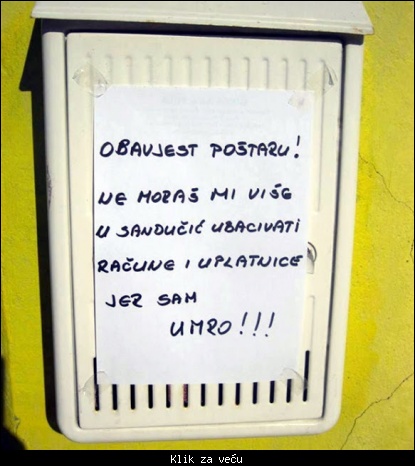 OBAVJEST POŠTARU!
NE MORAŠ MI VIŠE
U SANDUČIĆ UBACIVATI
RAČUNE I UPLATNICE
JER SAM
UMRO!!!
Klik za veću